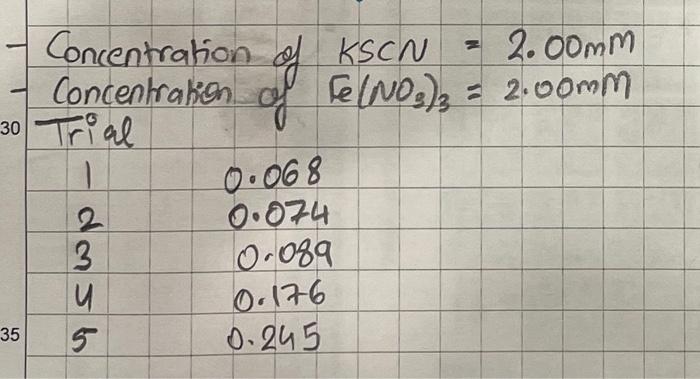 - Concentration of KSCN = 2.00mM
- Concentration of Fe(NO3)3 = 2.00mM
30 Trial
1 0.068
2 0.074
3 0.089
4 0.176
35 5 0.245